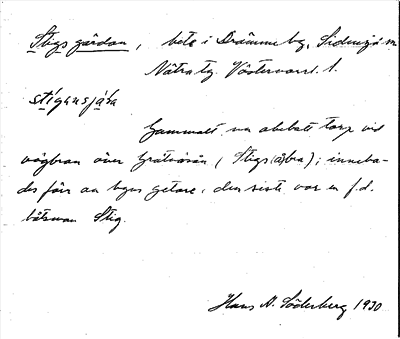 Stigsgärdan, bete i Drömme by, Sidensjö sn
Nätra tg. Västernorrl. l.
stígansjáḷa
Gammalt, nu obebott torp vid
vägbron över Gråtvärån (Stigs(å)bra); inneha-
des förr av byns getare; den siste var en f.d.
båtsman Stig.
Hans N. Söderberg 1930